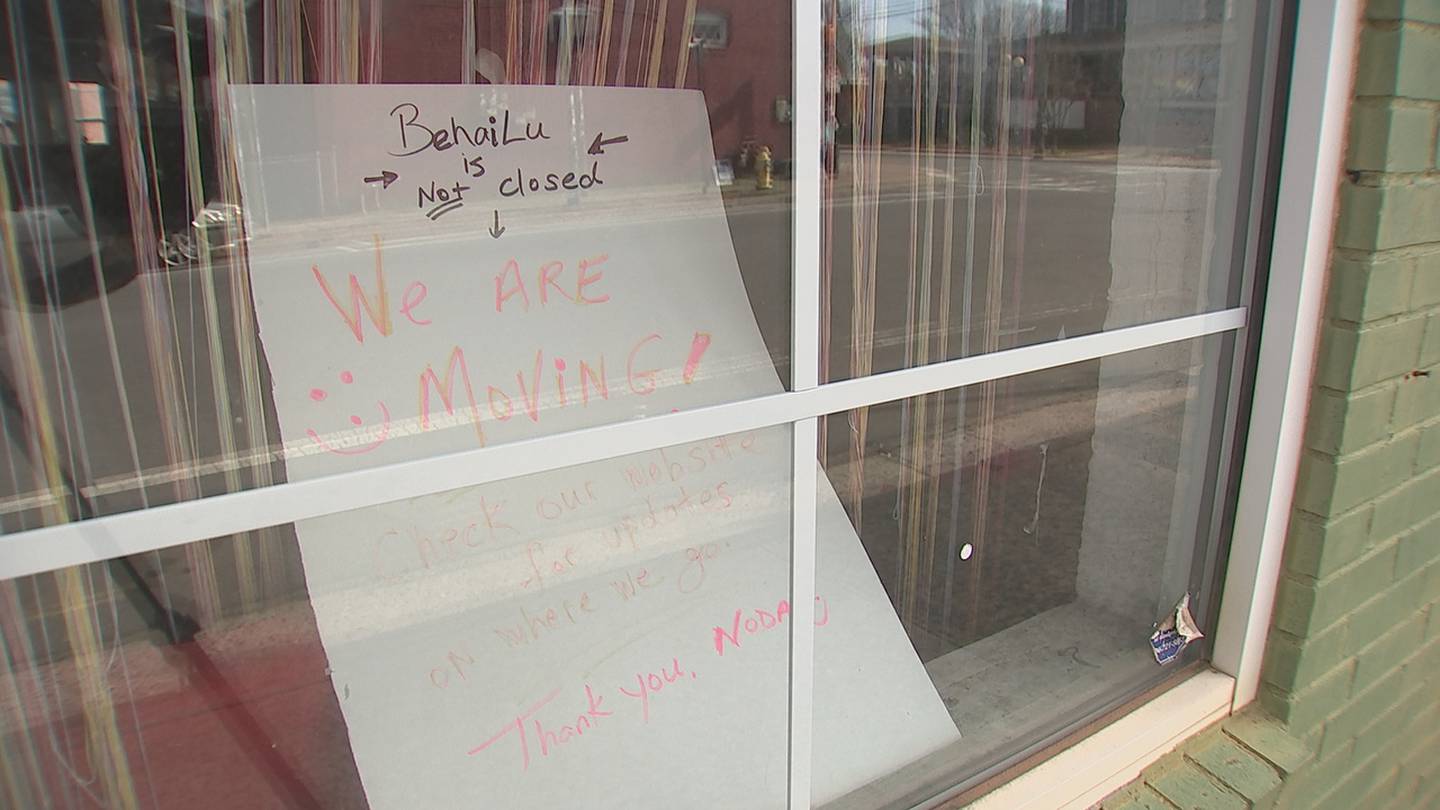 BehaiLu
is
Not closed
We ARE
MOVING!
Check our website
for updates.
on where we go.
Thank you, NODA